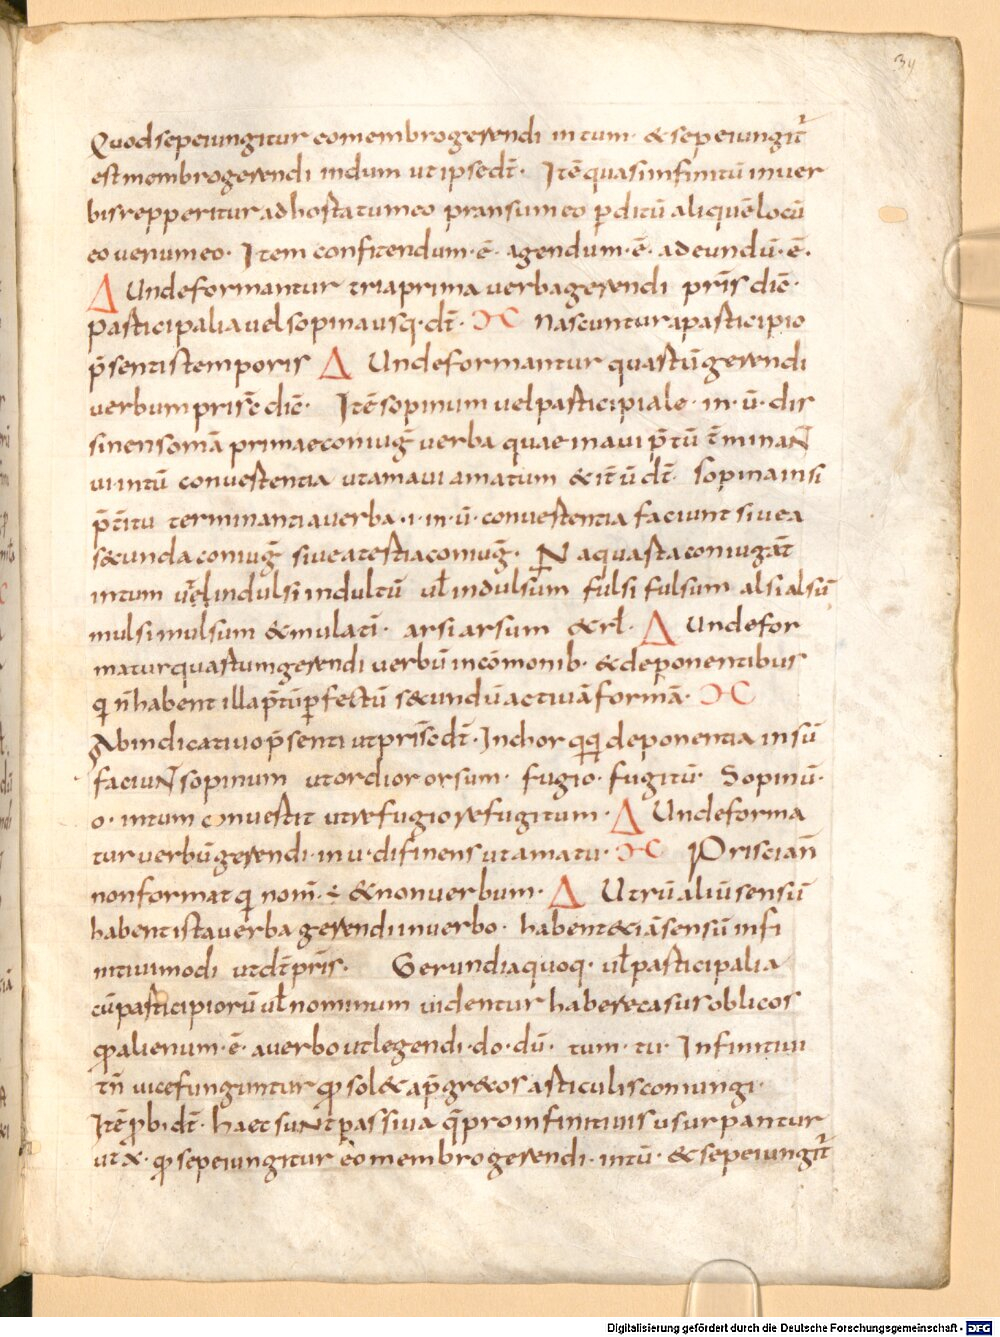 34
Quod sepe iungitur eo membro gerendi in tum · & sepe iungit̄
est membro gerendi in dum ut ipse dt̄ · Itē quasi infinitū in ver
bis repperitur ad hosta tum eo pransum eo p̱ditū aliquē locū
eo venum eo · Item confitendum · ē · agendum · ē · adeundū · ē ·
Δ Unde formantur tria prima verba gerendi pris̄ diē ·
participalia vel sopina usq · dt̄ · ϽC Nascuntur a participio
p̄sentis temporis Δ Unde formantur quartū gerendi
verbum pris̄c̄ diē · Itē sopinum vel participiale · in · ū · dis
sinens omā primae coniuḡ verba quae in avi p̄tū t̄minaN̄
ui in tū convertentia ut amavi amatum & it̄ ū dt̄ · sopina in si
p̄t̄itu terminantia verba · i · in · ū · convertentia faciunt sive a
secunda coniuḡ sive a tertia coniuḡ · Na quarta coniugat̄
in tum vel indulsi indultū ul̄ indulsum fulsi fulsum alsi alsū
mulsi mulsum & mulati · arsi arsum & rl̄ · Δ Unde for
matur quartum gerendi verbū in cōmonib · & deponentibus
q n̄ habent illa p̄t̄ū p̱fectū secundū activā formā · ϽC
Ab indicativo p̄senti ut pris̄c̄ dt̄ · Inchor qq deponentia in sū
faciuN̄ sopinum ut ordior orsum · fugio · fugitū · Sopinū ·
o · in tum convertit ut refugio refugitum · Δ Unde forma
tur verbū gerendi · in u · difinens ut amatu · ϽC Prisciañ
non format q nom̄ · ÷ & non verbum · Δ Utrū aliū sensū
habent ista verba gerendi in verbo · habent & iā sensū infi
nitivi modi ut dt̄ pris̄ · Gerundia quoq · ul̄ participalia
cū participiorū ul̄ nominum videntur habere casus oblicos
q̱ alienum · ē · a verbo ut legendi · do · dū · tum · tu · Infinitivi
tn̄ vice funguntur q̱ sol& ap̄ grecos articulis coniungi ·
Itē p̱bi · dt̄ · haec suNt passiva q̄ pro infinitivis usurpantur
ut x · q̱ sepe iungitur eo membro gerendi · in tū · & sepe iungit̄
Digitalisierung gefördert durch die Deutsche Forschungsgemeinschaft - DFG